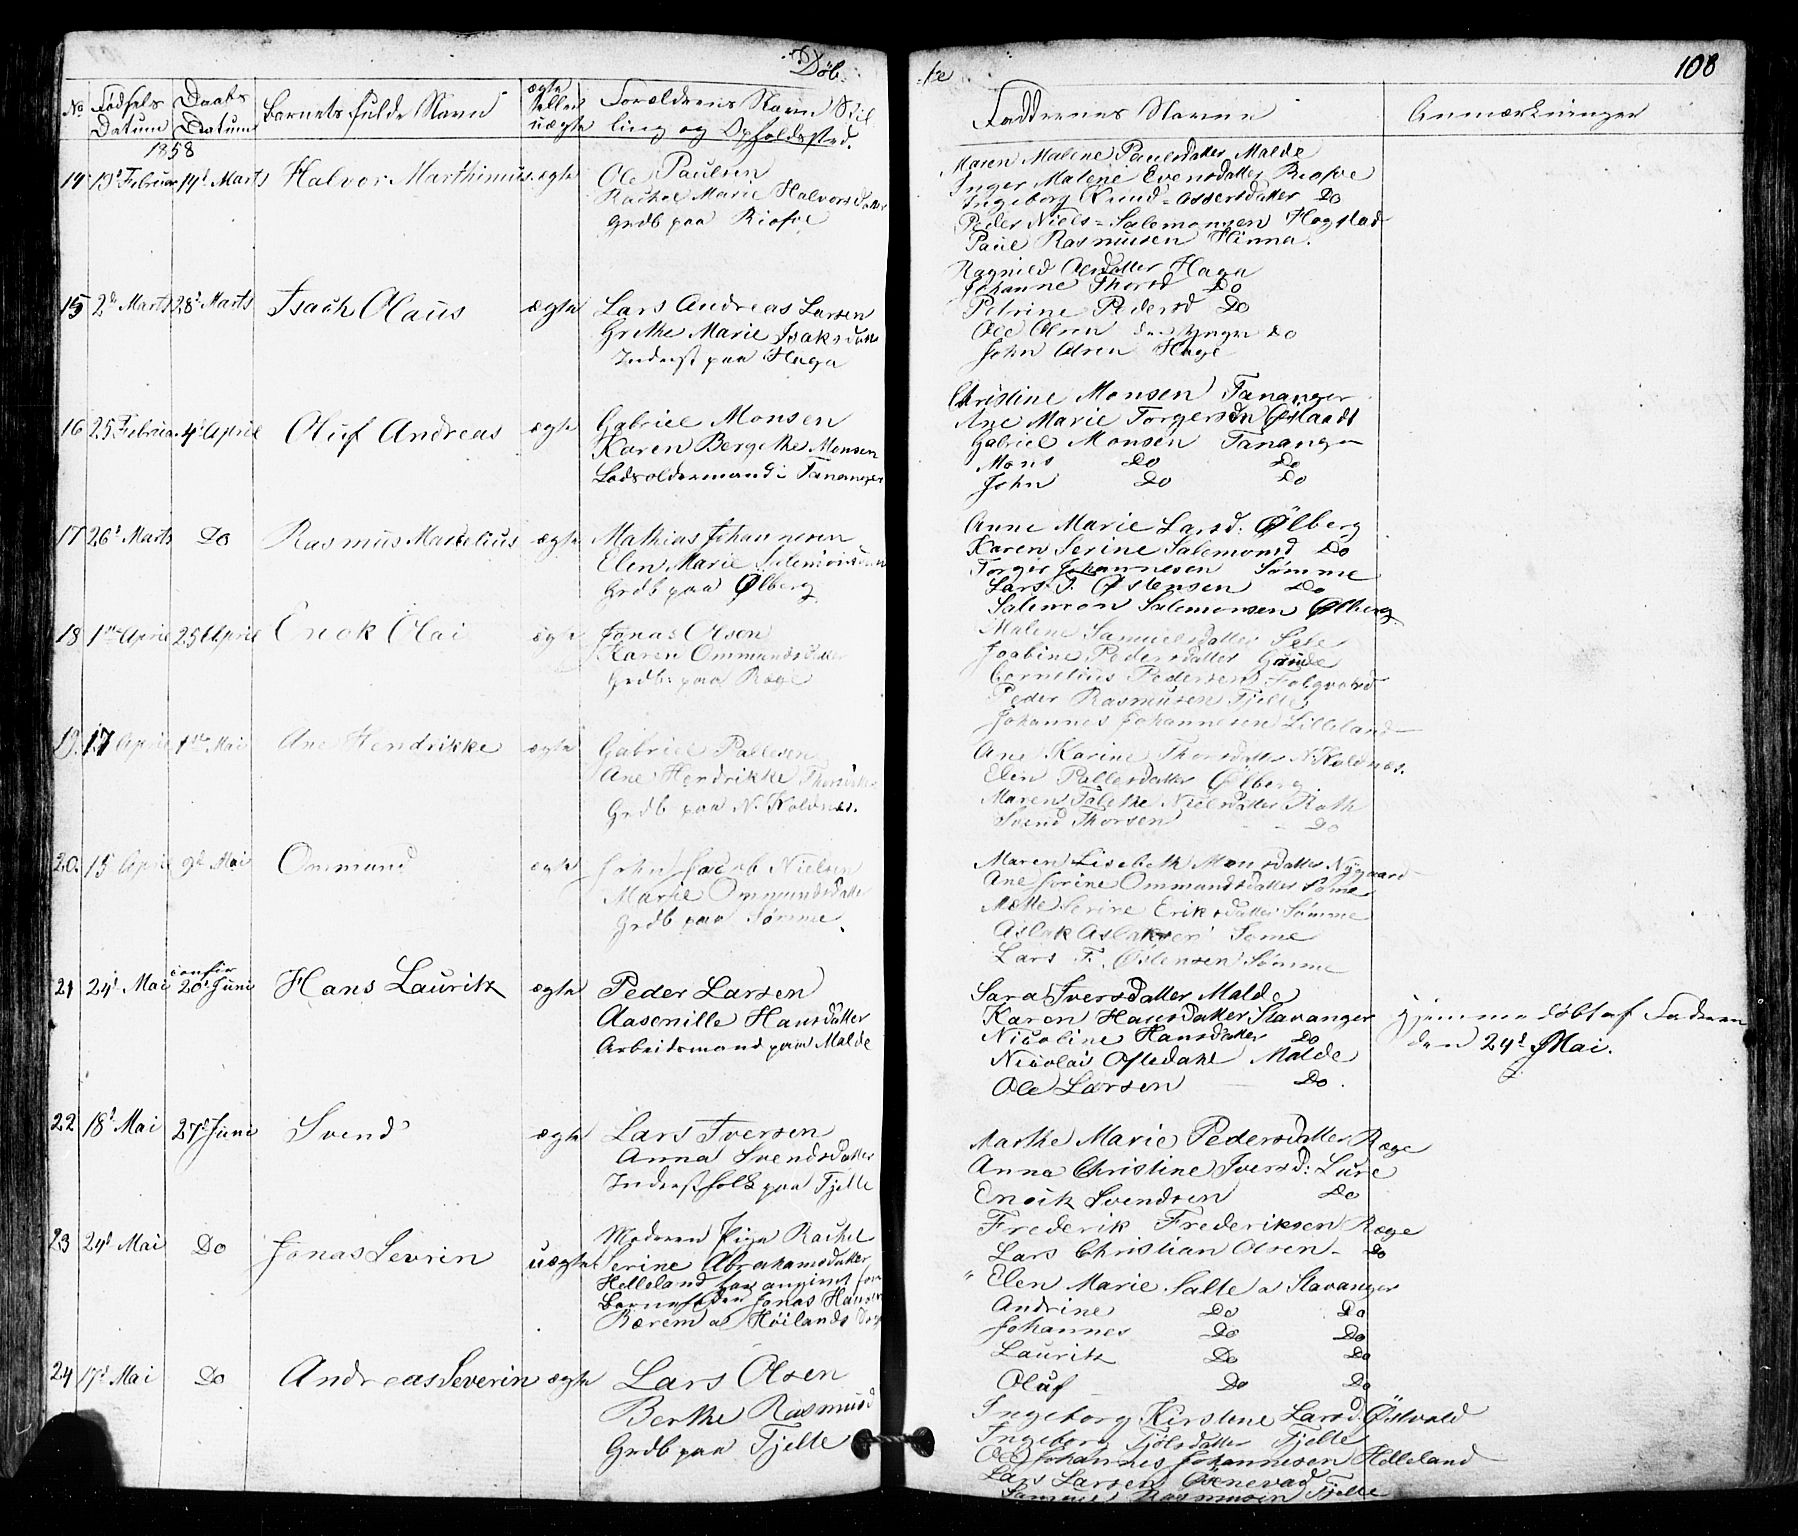 Døb
te
108
No
Fødsels Datum
Daabs Datum
Barnets fulde Navn
ægte eller uægte
Forældrenes Navn Stilling og Opholdssted.
Faddernes Navne
Anmærkninger
1858
14 13d Februar 14d Marts Halvor Marthinus ægte
Ole Paulsen
Rachel Marie Halvorsdatter
Grdb paa Riosve
Maren Malene Paulsdatter Malde
Inger Malene Evensdatter Riosve
Ingeborg Knud-Assersdatter Do
Peder Niels-Salemonsen Hogstad
Paul Rasmusen Hinna.
15 2d Marts 28d Marts Isach Olaus ægte
Lars Andreas Larsen
Grethe Marie Isaksdatter
Inderst paa Haga
Ragnild Olsdatter Haga
Johanne Thorsd Do
Petrine Pedersd Do
Ole Olsen den Yngre Do
John Olsen Hage
16 25 Februar 4d April Oluf Andreas ægte
Gabriel Monsen
Karen Bergethe Monsen
Lodsoldermand i Tananger
Christine Monsen Tananger
Ane Marie Torgersdn Øslandt
Gabriel Monsen Tananger
Mons Do Do
John Do Do
17 26d Marts Do Rasmus Martelius ægte
Mathias Johannesen
Elen Marie Salemonsdatter
Grdb paa Ølberg
Anne Marie Larsd: Ølberg
Karen Serine Salemonsd Do
Torger Johannesen Sømme
Lars T. Østensen Do
Salemon Salemonsen Ølberg
18 1ste April 25 April Enok Olai ægte
Jonas Olsen
Karen Ommundsdatter
Grdb: paa Ræge
Malene Samuelsdatter Sele
Joabine Pedersdatter Grude
Cornelius Pedersen Folgvold
Peder Rasmusen Tjelte
Johannes Johannesen Lilleland
19. 17 April 1ste Mai Ane Hendrikke ægte
Gabriel Pallesen
Ane Hendrikke Thorsdatter
Grdb paa N. Koldnes.
Ane Karine Thorsdatter N. Koldnes.
Elen Pallesdatter Ølberg
Maren Talethe Nielsdatter Roth
Svend Thorsen Do
20. 15 April 9d Mai Ommund ægte
John Jacob Nielsen
Marie Ommundsdatter
Grdb paa Sømme.
Maren Lisebeth Monsdatter Nygaard
Ane Serine Ommundsdatter Sømme
Mette Serine Eriksdatter Sømme
Aslak Aslaksen Sømme
Lars T. Østensen Sømme
21 24d Mai confir 20d Juni Hans Lauritz ægte
Peder Larsen
Aasenille Hansdatter
Arbeidsmand paa Malde
Sara Iversdatter Malde
Karen Hansdatter Stavanger
Nicoline Hansdatter Do
Nicolai Oftedahl Malde
Ole Larsen Do.
hjemmedøbt af Faderen
den 24d Mai.
22 18d Mai 27d Juni Svend ægte
Lars Iversen
Anna Svendsdatter
Inderstfolk paa Tjelte
Marthe Marie Pedersdatter Ræge
Anna Christine Iversd: Lure
Enoik Svendsen Do
Frederik Frederiksen Ræge
Lars Christian Olsen Do
23 24d Mai Do Jonas Sevrin uægte
Moderen Pige Rachel
Serine Abrahamsdatter
Helleland har angivet som
Barnefader Jonas Hansen
Bærem af Høilands
" Elen Marie Salte a Stavanger
Andrine Do Do
Johannes Do Do
Lauritz Do Do
Oluf Do Do
24 17d Mai Do Andreas Severin ægte
Lars Olsen
Berthe Rasmusd
Grdb paa Tjelte
Ingeborg Kirstine Larsd. Østvold
Ingeborg Tjølsdatter Tjelte
Ole Johannes Johannesen Helleland
Lars Larsen Ønevad
Samuel Rasmusen Tjelte